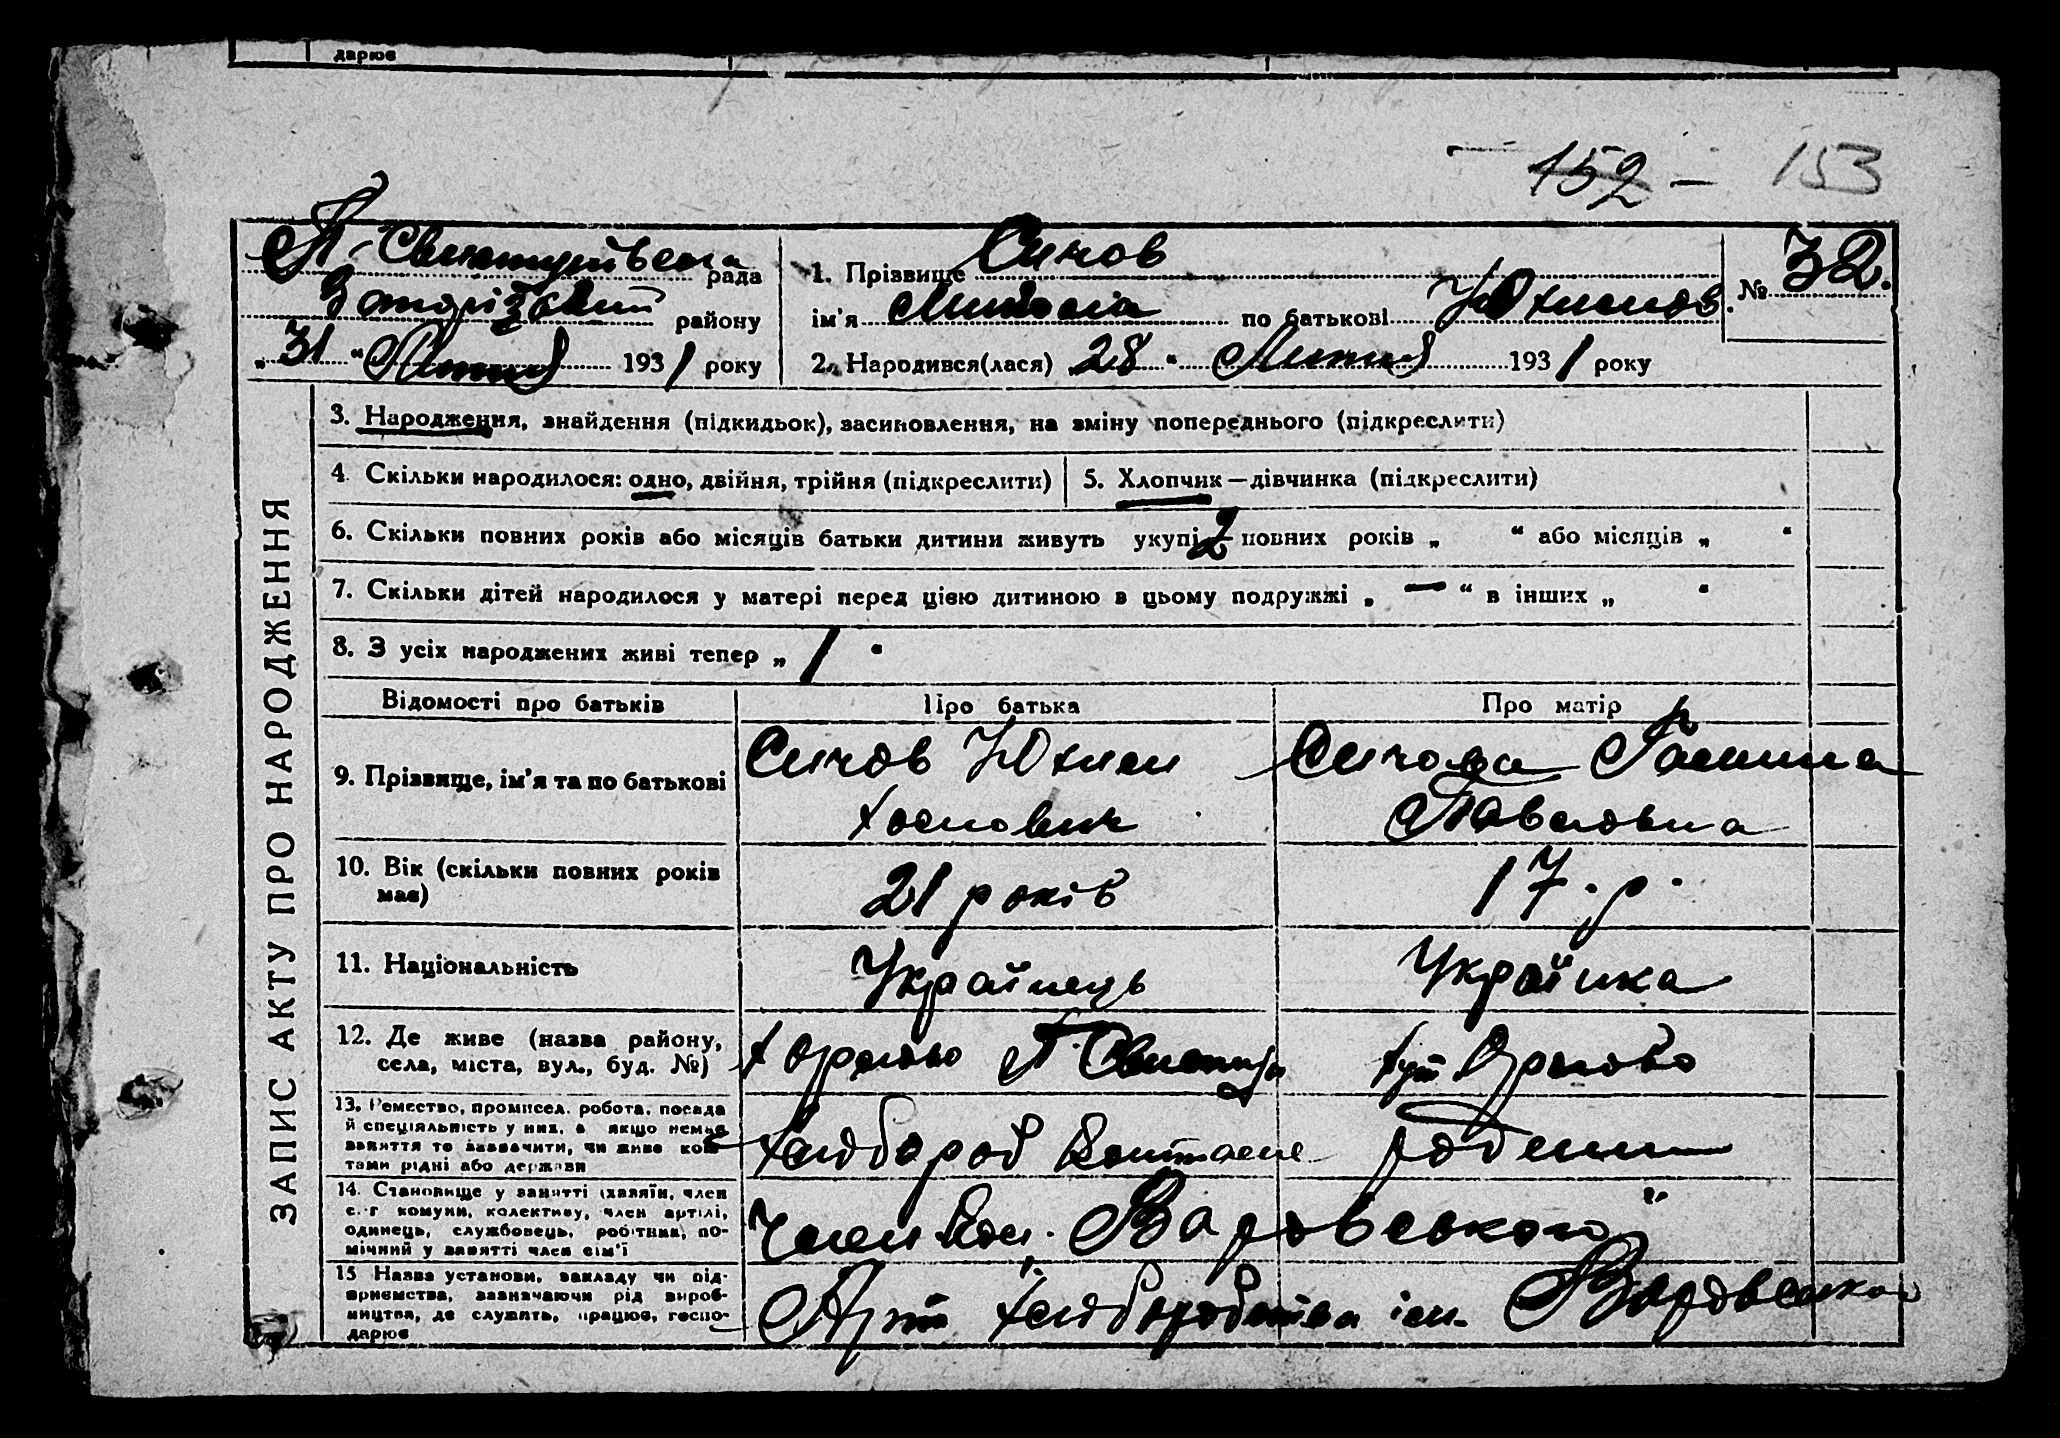 дарює
152 — 153
рада
1. Прізвище Сичов
№ 32.
Запорізький району
ім'я Микола по батькові Юхимов.
„31“ Липня 1931 року
2. Народився(лася) 28 “ Липня 1931 року
ЗАПИС АКТУ ПРО НАРОДЖЕННЯ
3. Народження, знайдення (підкидьок), засиновлення, на зміну попереднього (підкреслити)
4. Скільки народилося: одно, двійня, трійня (підкреслити)
5. Хлопчик — дівчинка (підкреслити)
6. Скільки повних років або місяців батьки дитини живуть укупі 2 повних років „ “ або місяців „ “
7. Скільки дітей народилося у матері перед цією дитиною в цьому подружжі „ — “ в інших „ “
8. З усіх народжених живі тепер „ 1 “
Відомості про батьків
Про батька
Про матір
9. Прізвище, ім'я та по батькові
Сичов Юхим
Сичова Галина
Павловна
10. Вік (скільки повних років має)
21 років
17. р.
11. Національність
Українець
Українка
12. Де живе (назва району,
села, міста, вул., буд. №)
13. Ремество, промисел, робота, посада
й спеціяльність у них, а якщо немає
заняття то зазначити, чи живе кош-
тами рідні або держави
Хлібороб
14. Становище у занятті (хазяїн, член
с.-г комуни, колективу, член артілі,
одинець, службовець, робітник, по-
мічний у занятті член сім'ї
Член Кол.
15 Назва установи, закладу чи під-
приємства, зазначаючи рід вироб-
ництва, де служить, працює, госпо-
дарює
Арт Хлібороб ім.